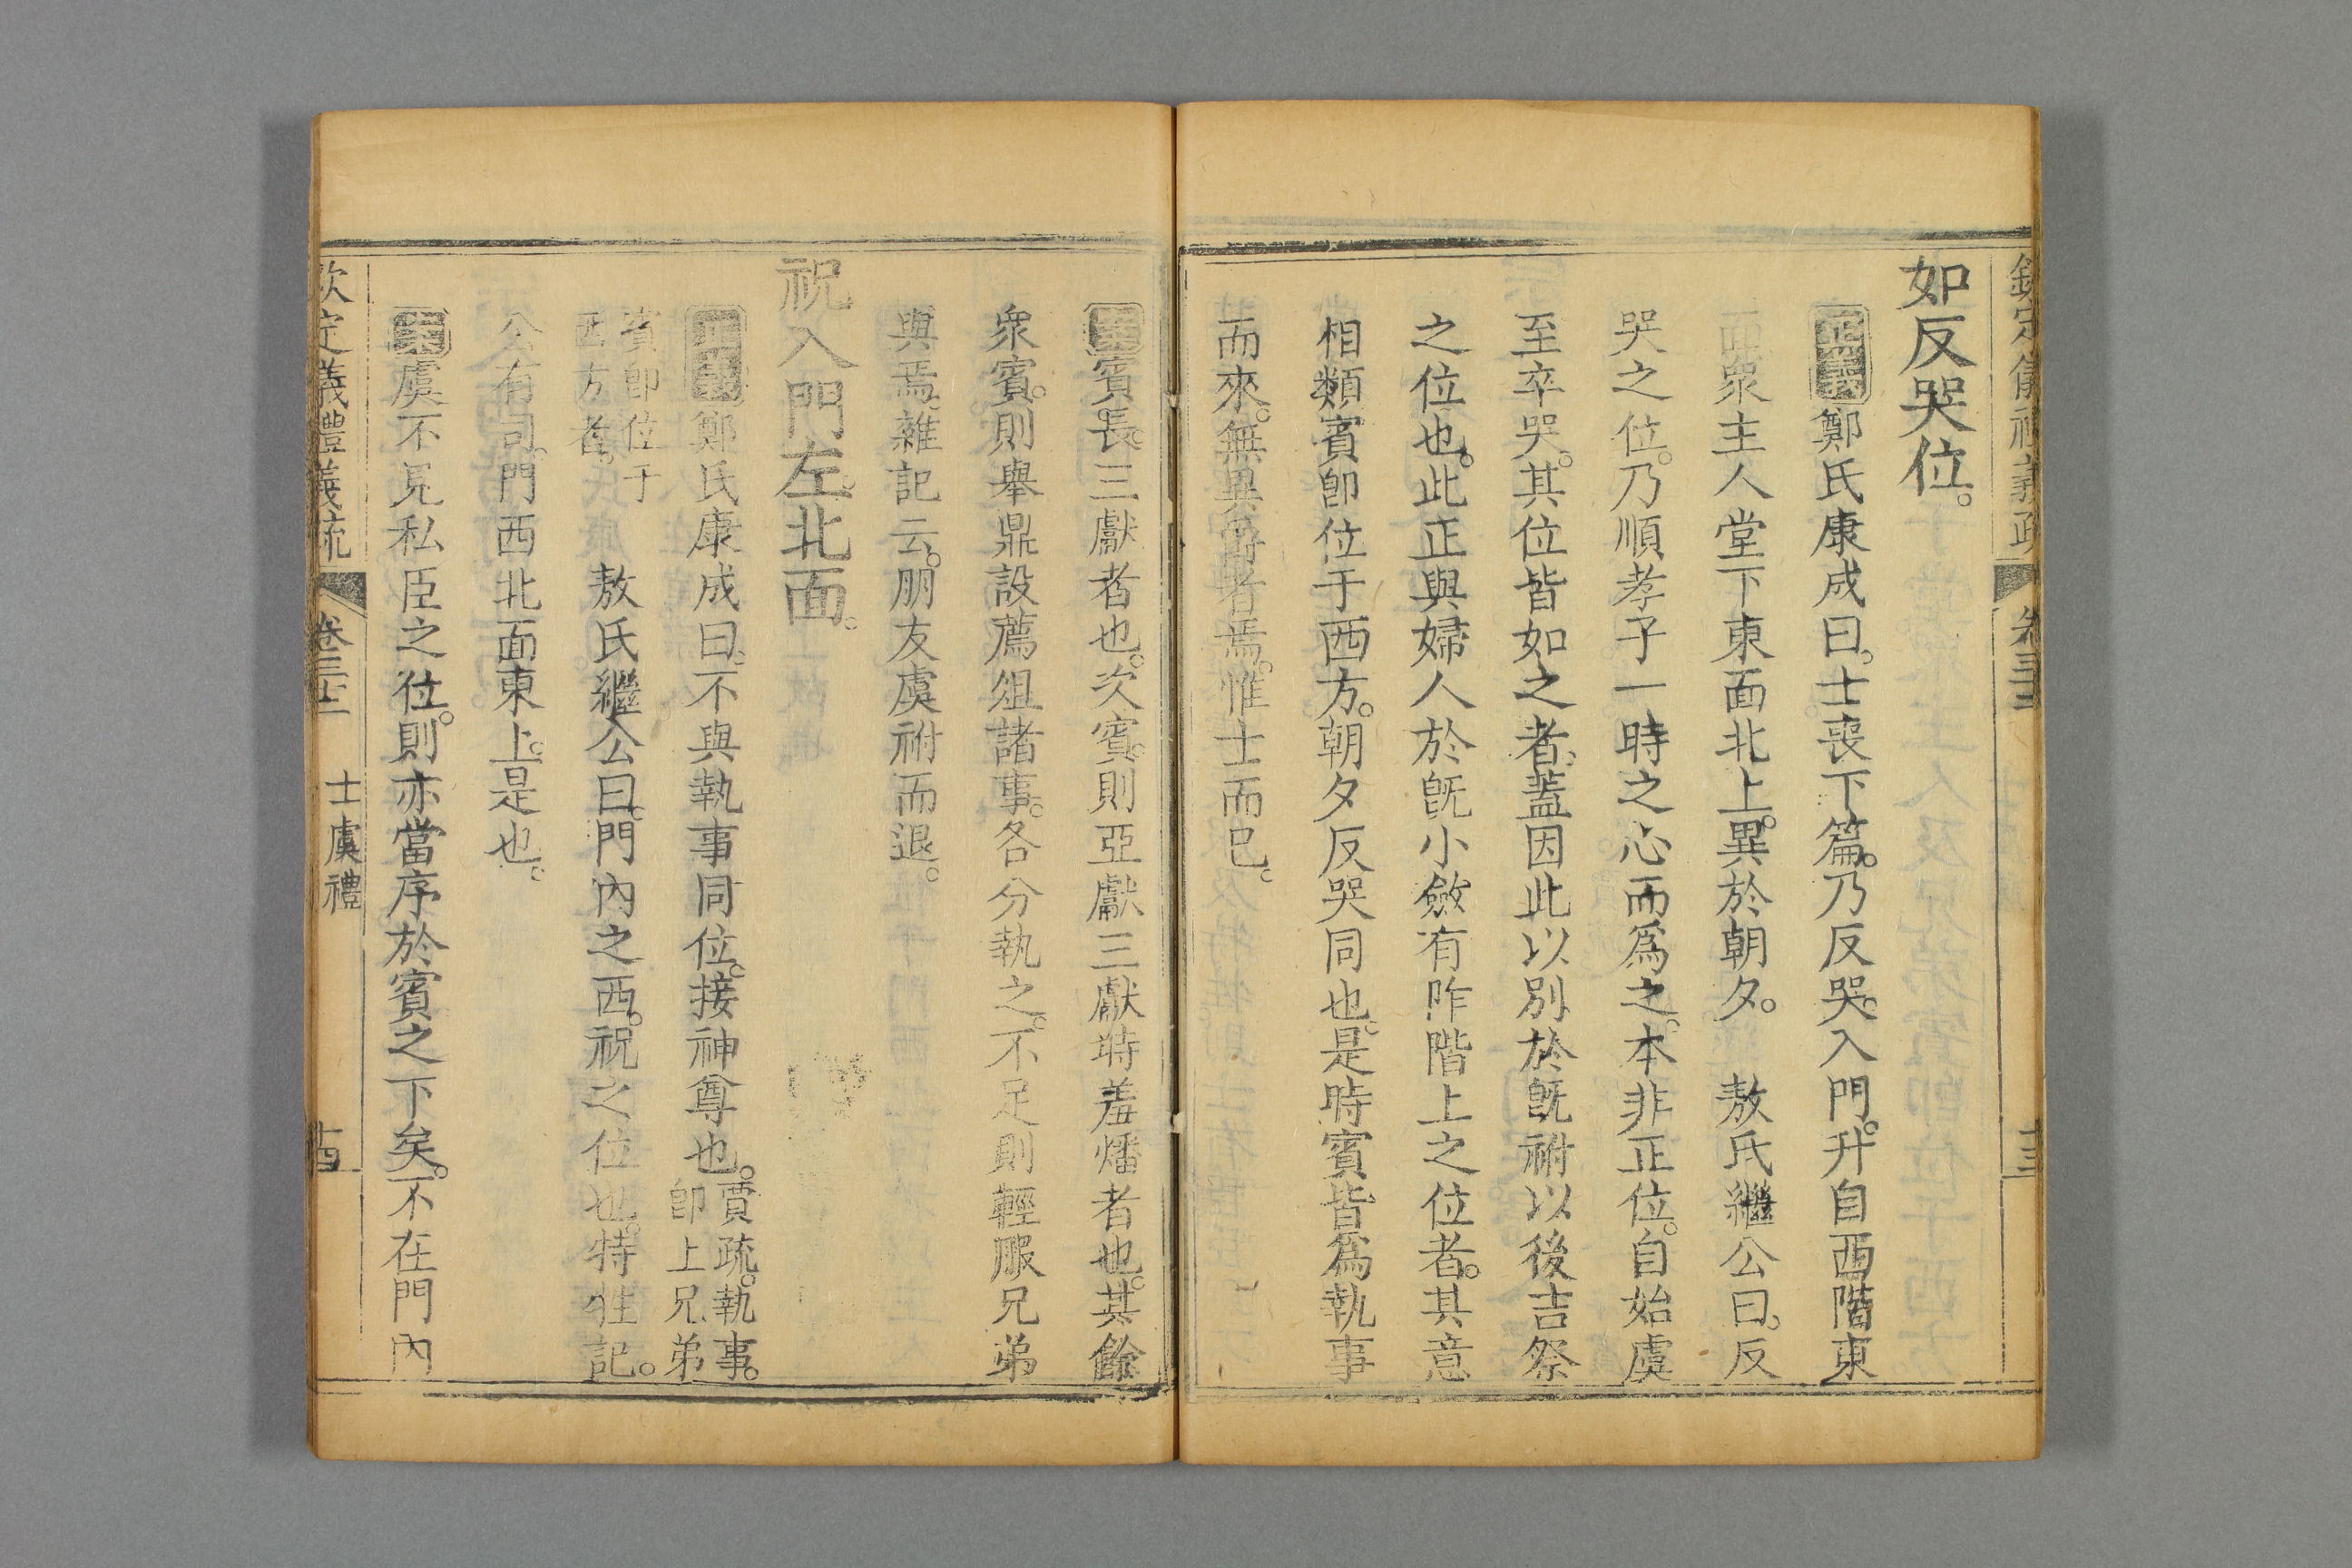 欽定儀禮義疏 卷三十三 十三
如反哭位。
正義鄭氏康成曰。士喪下篇。乃反哭。入門。升自西階東
面。衆主人堂下東面北上。異於朝夕。 敖氏繼公曰。反
哭之位。乃順孝子一時之心而爲之。本非正位。自始虞
至卒哭。其位皆如之者。蓋因此以別於旣祔以後吉祭
之位也。此正與婦人於旣小斂有阼階上之位者。其意
相類。賓卽位于西方。朝夕反哭同也。是時賓皆爲執事
而來。無異爵者焉。惟士而已。
案賓長。三獻者也。次賓。則亞獻三獻時羞燔者也。其餘
衆賓。則舉鼎設薦俎諸事。各分執之。不足則輕服兄弟
與焉。雜記云。朋友虞祔而退。
祝入門左。北面。
正義鄭氏康成曰。不與執事同位。接神尊也。賈疏。執事。卽上兄弟
賓卽位于西方者。 敖氏繼公曰。門內之西。祝之位也。特牲記。
公有司。門西北面東上。是也。
案虞不見私臣之位。則亦當序於賓之下矣。不在門內
欽定儀禮義疏 卷三十三 士虞禮 十四